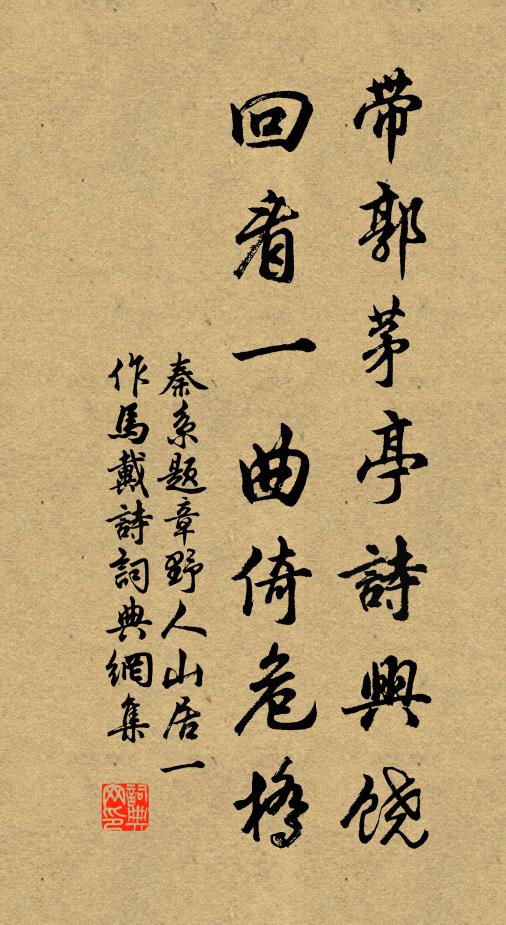 帶郭茅亭詩興饒
回看一曲倚危橋
秦系題章野人山居一
作馬戴詩詞典網集
詞典网印